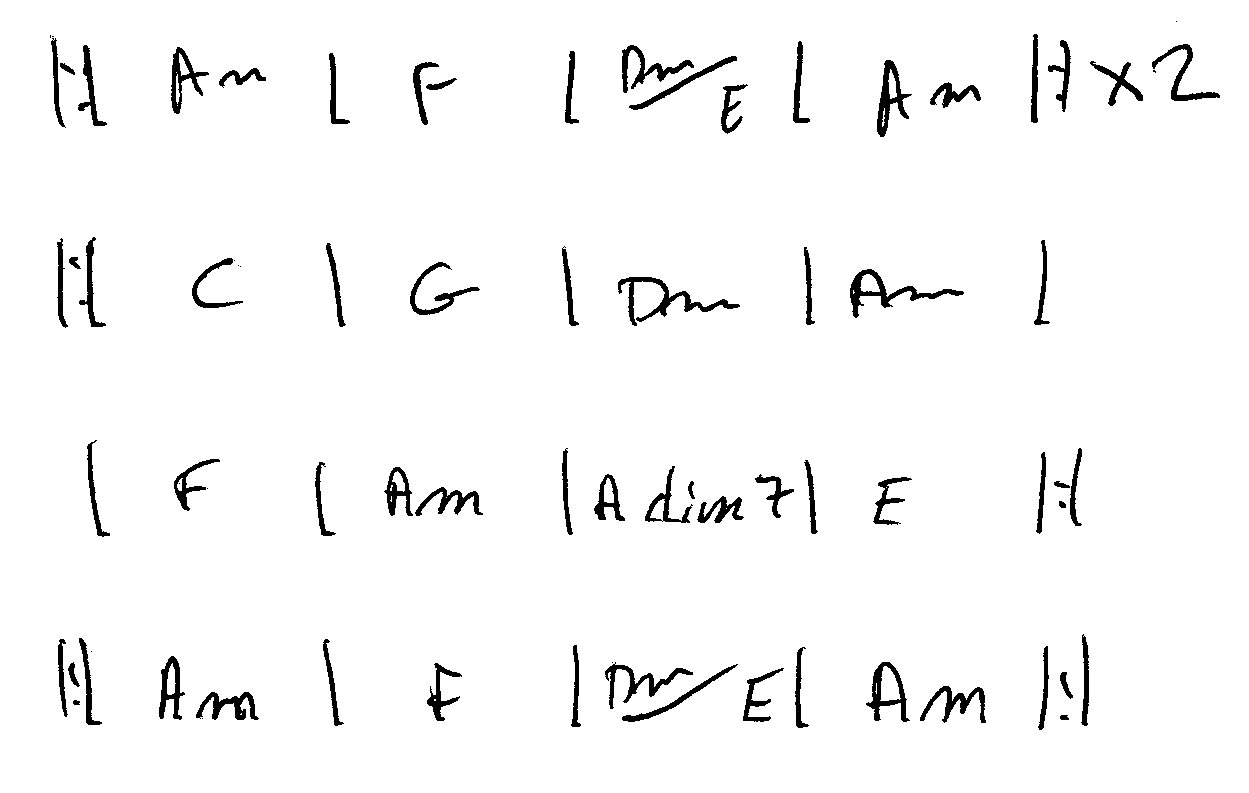 |:| Am | F | Dm/E | Am |:| x2
|:| C | G | Dm | Am |
| F | Am | Adim7 | E |:|
|:| Am | F | Dm/E | Am |:|